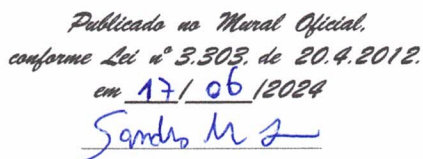 Publicado no Mural Oficial,
conforme Lei nº 3.303, de 20.4.2012.
em 17/ 06 /2024